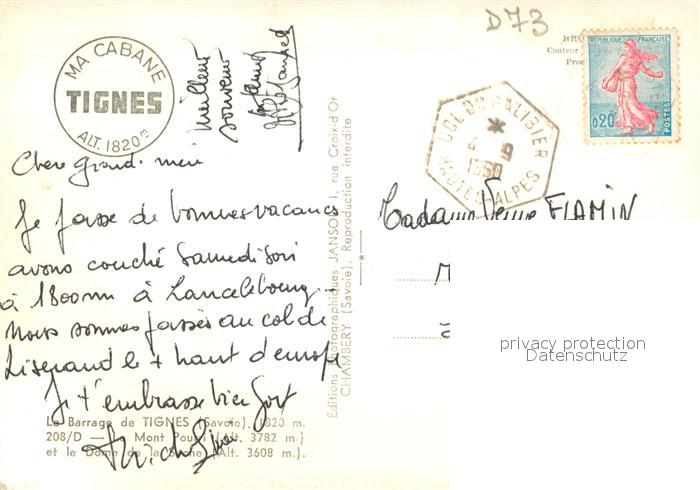 D73
MA CABANE
TIGNES
ALT. 1820m
Meilleur
souvenir
BRU
Couleur
Pro
REPUBLIQUE FRANÇAISE
0,20
POSTES
COL DU GALIBIER
* 
1960
HAUTES-ALPES
Chère grand-mère
Je passe de bonnes vacances
avons couché samedi soir
à 1800m à Lanslebourg
Nous sommes passés au col de
Liseran le + haut d'europe
Je t'embrasse bien fort
Madame Veuve FLAMIN
Editions Photographiques JANSOL, 1, rue Croix-d'Or
CHAMBERY (Savoie). Reproduction interdite
privacy protection
Datenschutz
Le Barrage de TIGNES (Savoie). 1820 m.
208/D — Mont Pourri (Alt. 3782 m.)
et le Dôme de la Sache (Alt. 3608 m.).